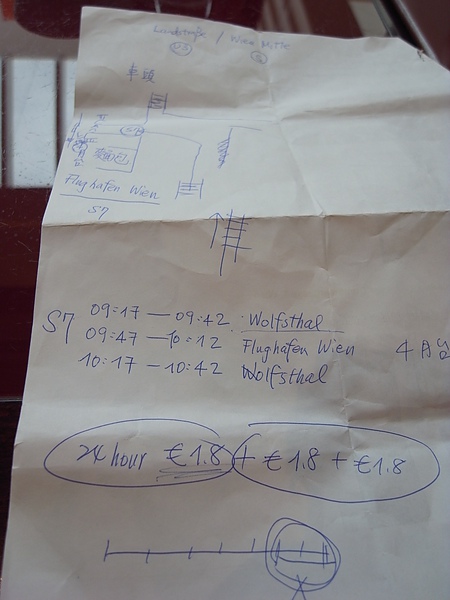 Landstraße / Wien Mitte
U3
車頭
S7
麥面包
Flughafen Wien
S7
S7
09:17 — 09:42 Wolfsthal
09:47 — 10:12 Flughafen Wien
10:17 — 10:42 Wolfsthal
4月台
24 hour €1.8 + €1.8 + €1.8